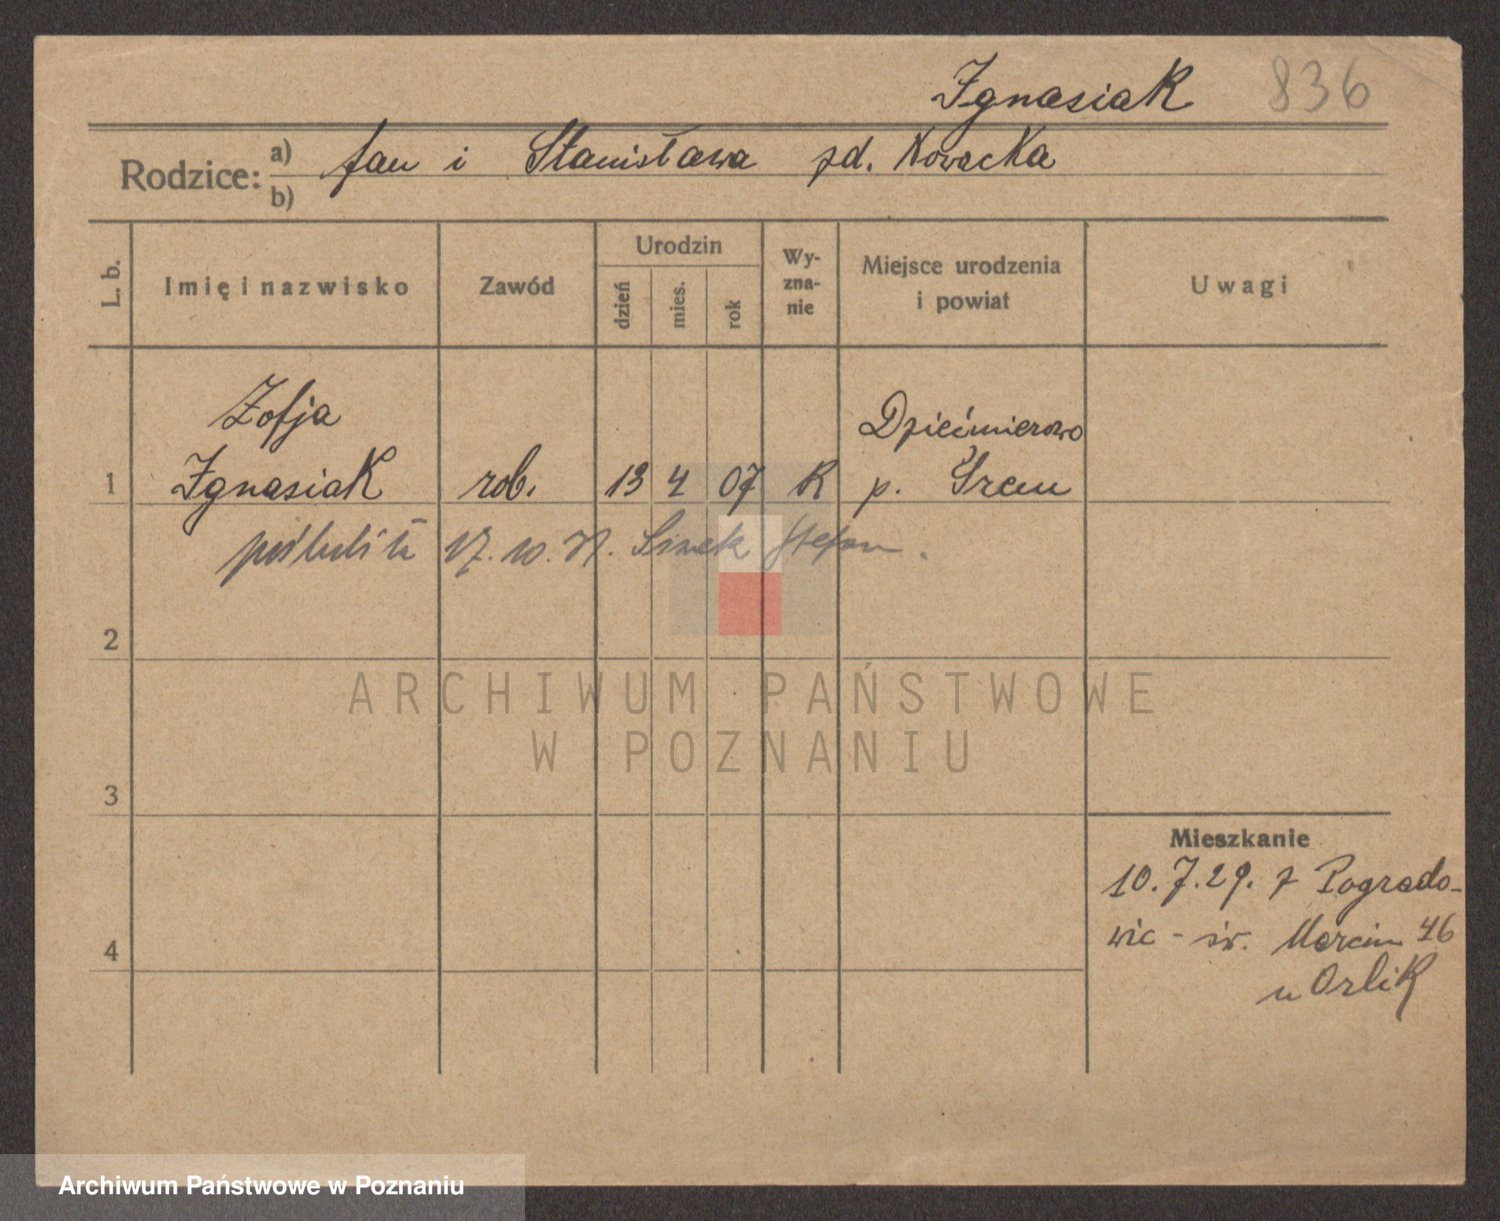 Ignasiak 836
Rodzice: a) Jan i Stanisława zd. Nowacka
b)
L. b. Imię i nazwisko Zawód Urodzin dzień mies. rok Wy-zna-nie Miejsce urodzenia i powiat Uwagi
Zofja Dziećmierowo
1 Ignasiak rob. 13 4 07 R p. Śrem
poślubiła 17. 10. 31. Stefan.
2
ARCHIWUM PAŃSTWOWE
W POZNANIU
3
Mieszkanie
10.7.29. z Pogrado-
4 wic - św. Marcin 46
u Orlik
Archiwum Państwowe w Poznaniu